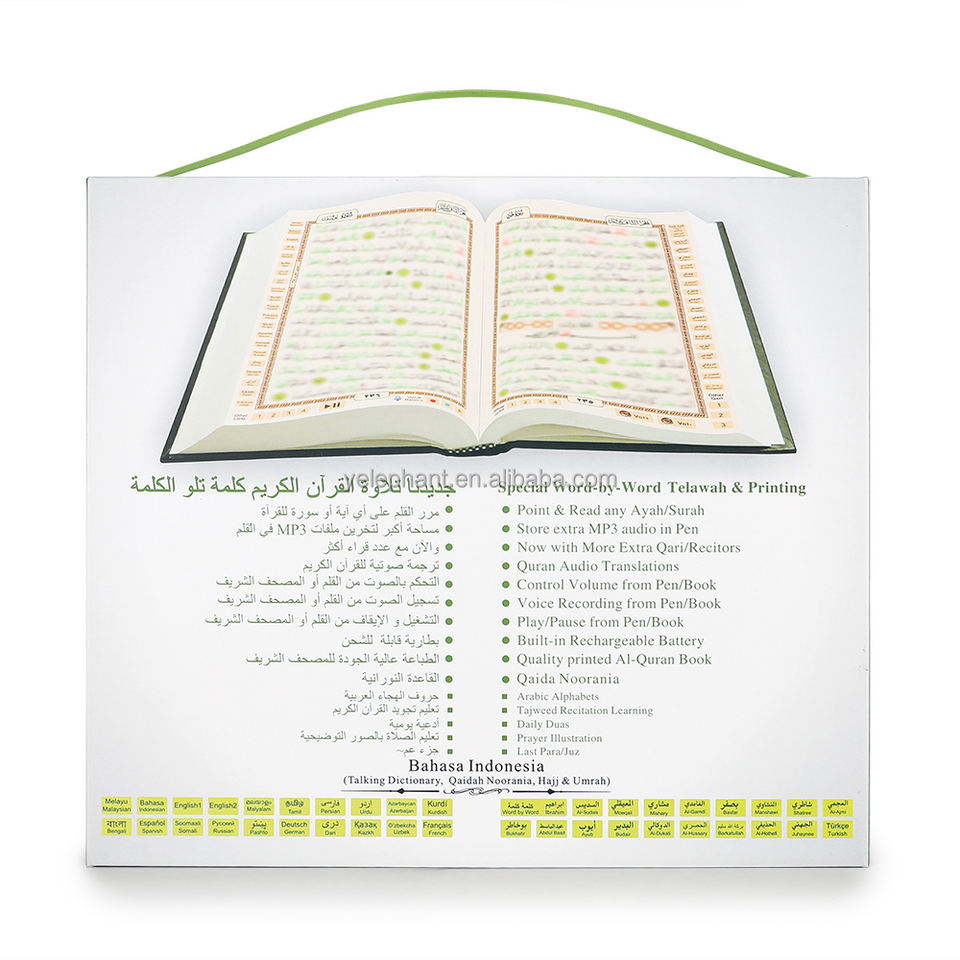 yelephant.en.alibaba.com
جديدنا تلاوة القرآن الكريم كلمة تلو الكلمة
مرر القلم على أي آية أو سورة للقرأة
مساحة أكبر لتخرين ملفات MP3 في القلم
والآن مع عدد قراء أكثر
ترجمة صوتية للقرآن الكريم
التحكم بالصوت من القلم أو المصحف الشريف
تسجيل الصوت من القلم أو المصحف الشريف
التشغيل و الإيقاف من القلم أو المصحف الشريف
بطارية قابلة للشحن
الطباعة عالية الجودة للمصحف الشريف
القاعدة النورانية
حروف الهجاء العربية
تعليم تجويد القرآن الكريم
أدعية يومية
تعليم الصلاة بالصور التوضيحية
جزء عم~
Special Word-by-Word Telawah & Printing
Point & Read any Ayah/Surah
Store extra MP3 audio in Pen
Now with More Extra Qari/Recitors
Quran Audio Translations
Control Volume from Pen/Book
Voice Recording from Pen/Book
Play/Pause from Pen/Book
Built-in Rechargeable Battery
Quality printed Al-Quran Book
Qaida Noorania
Arabic Alphabets
Tajweed Recitation Learning
Daily Duas
Prayer Illustration
Last Para/Juz
Bahasa Indonesia
(Talking Dictionary, Qaidah Noorania, Hajj & Umrah)
Melayu Malaysian
Bahasa Indonesian
English1
English2
മലയാളം Malyalam
தமிழ் Tamil
فارسی Persian
اردو Urdu
Azərbaycan Azerbaijan
Kurdî Kurdish
বাংলা Bengali
Español Spanish
Soomaali Somali
Русский Russian
پښتو Pashto
Deutsch German
دری Dari
Қазақ Kazkh
O'zbekcha Uzbek
Français French
كلمة كلمة Word by Word
ابراهيم Ibrahim
السديس Al-Sudes
المعيقلي Moeqali
مشاري Mishary
الغامدي Al-Gamdi
بصفر Basfar
المنشاوي Manshawi
شاطري Shatree
العجمي Al-Ajmi
بوخاطر Bukhatir
عبدالباسط Abdul Basit
أيوب Ayub
البدير Budair
الدوكالي Al-Dukali
الحصري Al-Hussary
بركة الله سليم Barkatullah
الحذيفي Al-Hotheli
الجهني Alhaynee
Türkçe Turkish